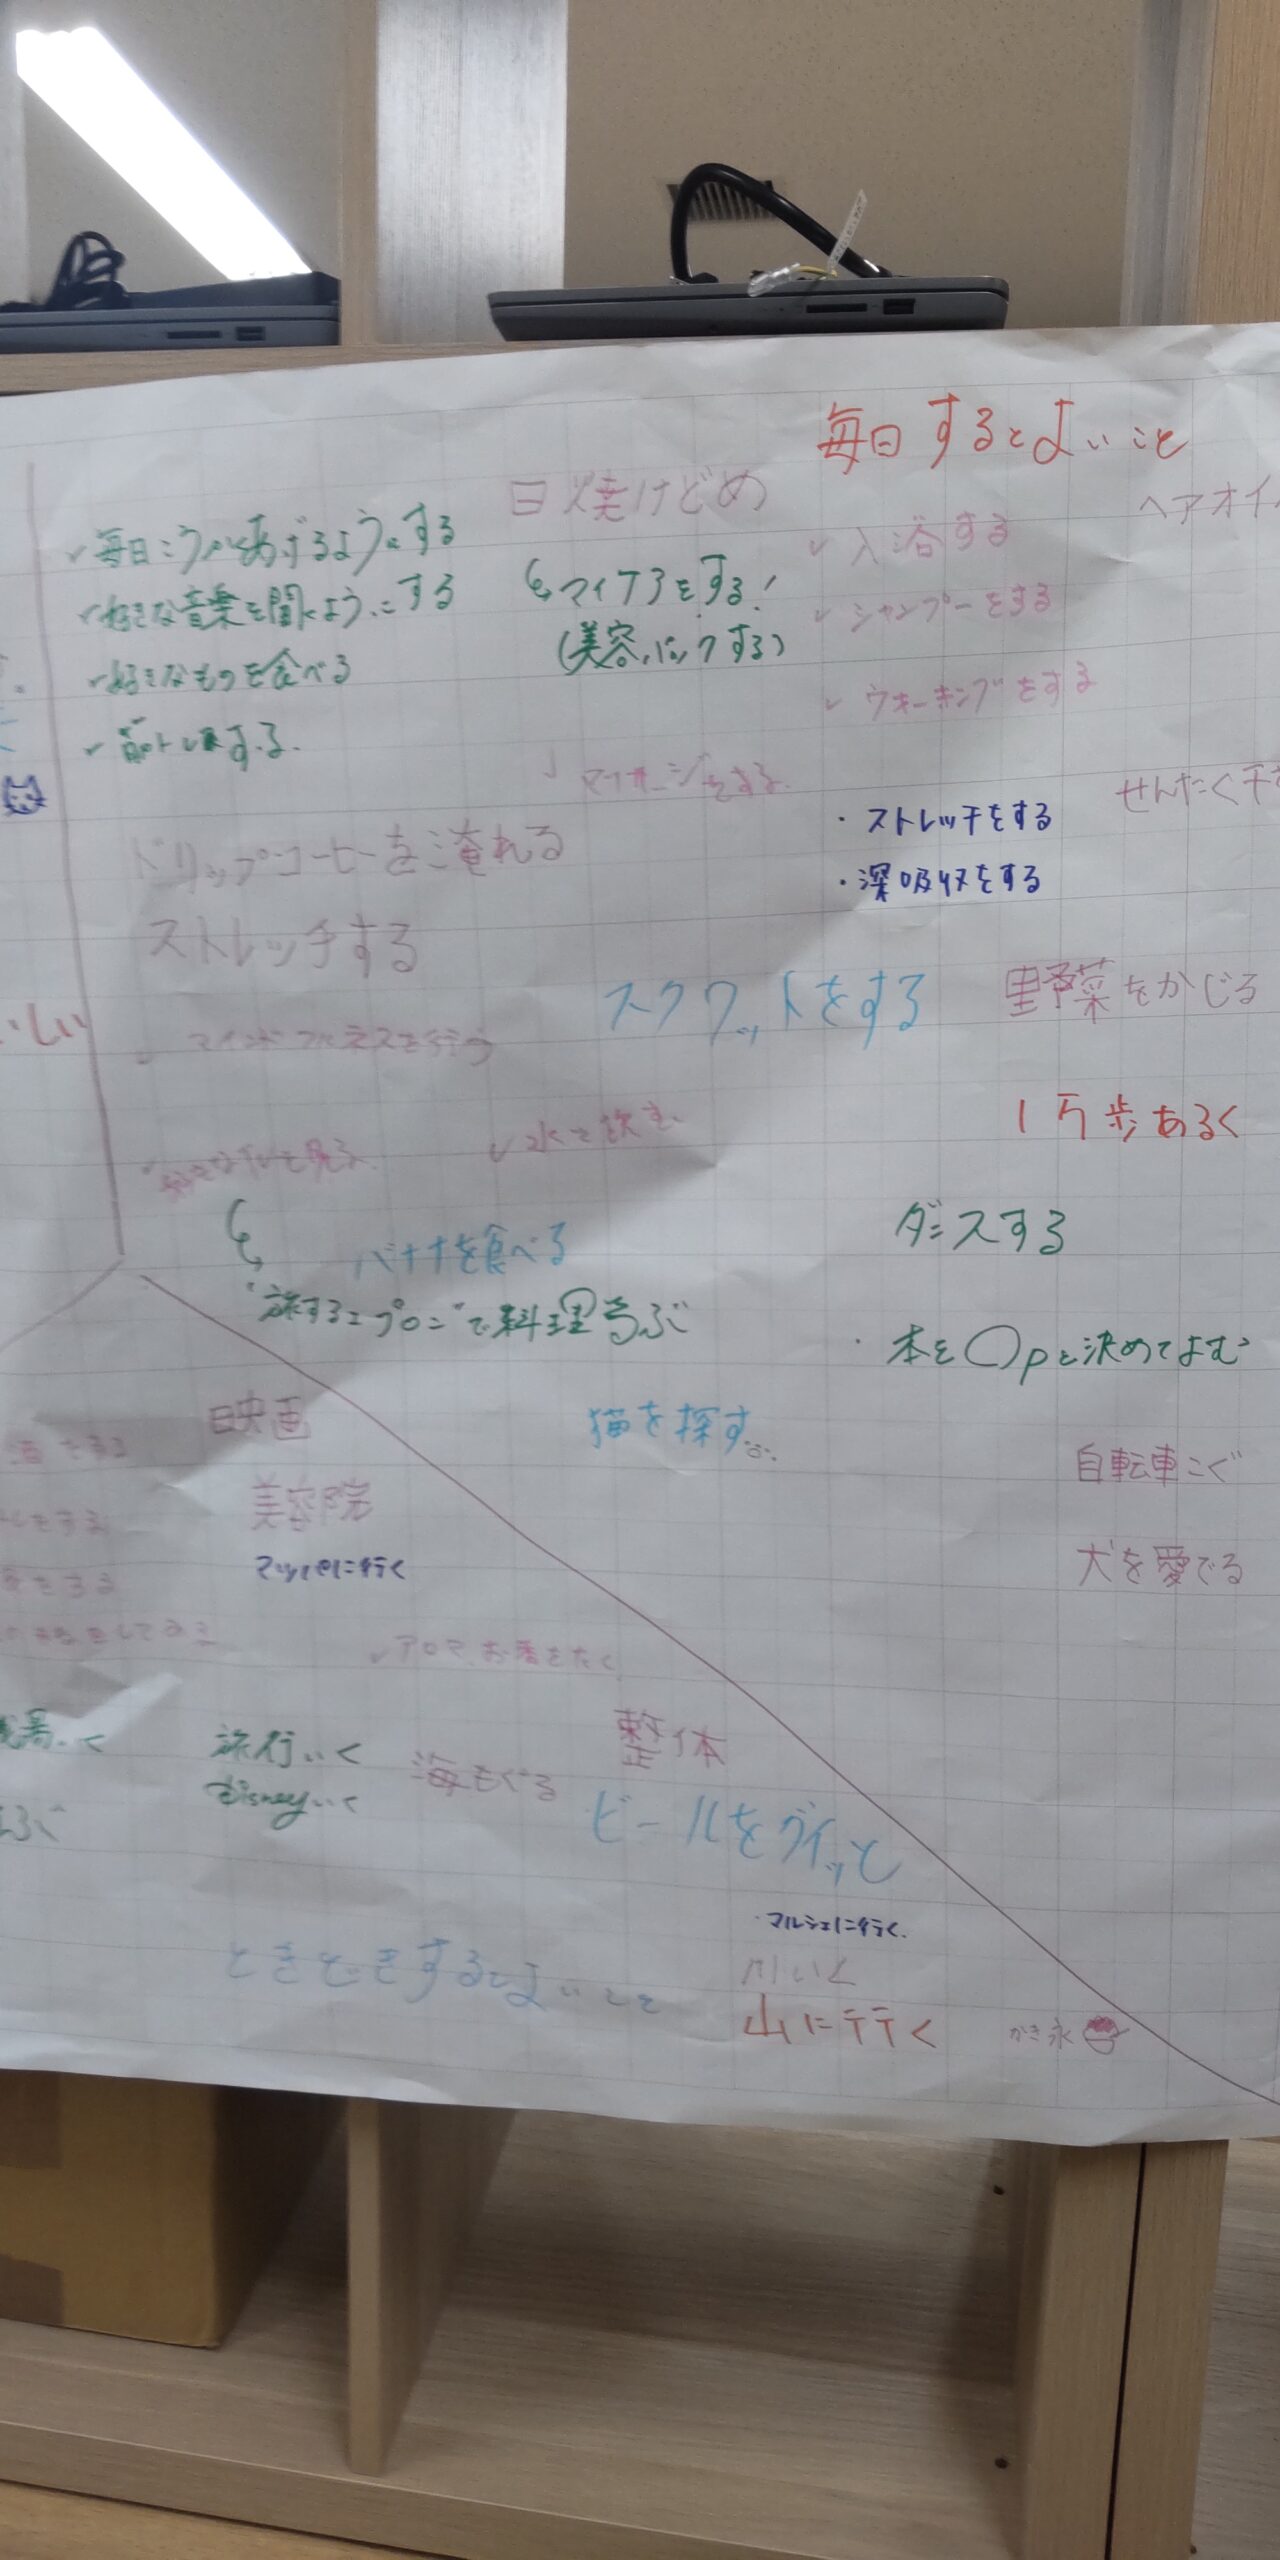 毎日するとよいこと
日焼けどめ
ヘアオイ
✓毎日こうかくあげるようにする
✓好きな音楽を聞くようにする
✓好きなものを食べる
✓筋トレする.
マイケアをする!
(美容パックする)
✓入浴する
✓シャンプーをする
✓ウォーキングをする
✓マッサージをする.
・ストレッチをする
・深吸収をする
せんたく干
ドリップコーヒーを淹れる
ストレッチする
スクワットをする
野菜をかじる
いしい
✓マインドフルネスを行う
1万歩あるく
✓水を飲む、
ダンスする
バナナを食べる
"旅するエプロン"で料理学ぶ
・本を○Pと決めてよむ
猫を探す
自転車こぐ
犬を愛でる
映画
美容院
マッパに行く
✓アロマ、お香をたく
整体
旅行いく
Disneyいく
海もぐる
ビールをグイッと
・マルシェに行く.
川いく
山に行く
かき氷
ときどきするとよいこと